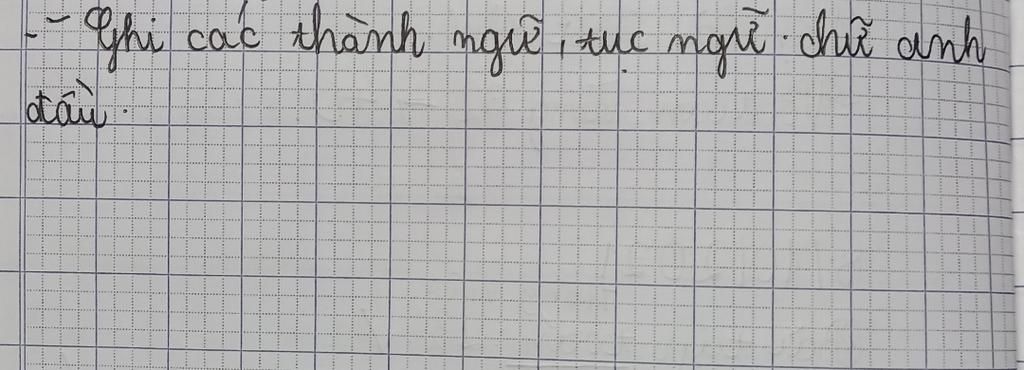 - Ghi các thành ngữ, tục ngữ. chữ anh
đầu.